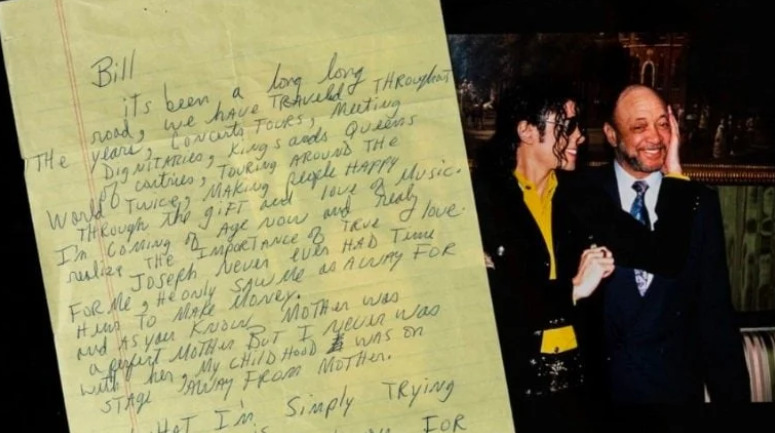 Bill
its been a long long
road, we have TRAVELED THROUGHOUT
THE years, CONCERTS TOURS, MEETING
DIGNITARIES, KINGS and QUEENS
of contries, TOURING AROUND THE
World TWICE, MAKING PEOPLE HAPPY
THROUGH the giFT and Love of Music.
I'm COMING of Age NOW and realy
realize THE IMPORTANCE of TRUE love.
JOSEPH Never ever HAD Time
FOR Me, He only SAW Me AS A WAY FOR
HIM TO MAKE MONEY.
and AS you KNOW MOTHER was
a perfect MOTHER BUT I never was
with her, My CHILDHOOD WAS on
STAGE AWAY FROM MOTHER.
WHAT I'm Simply TRYING
FOR